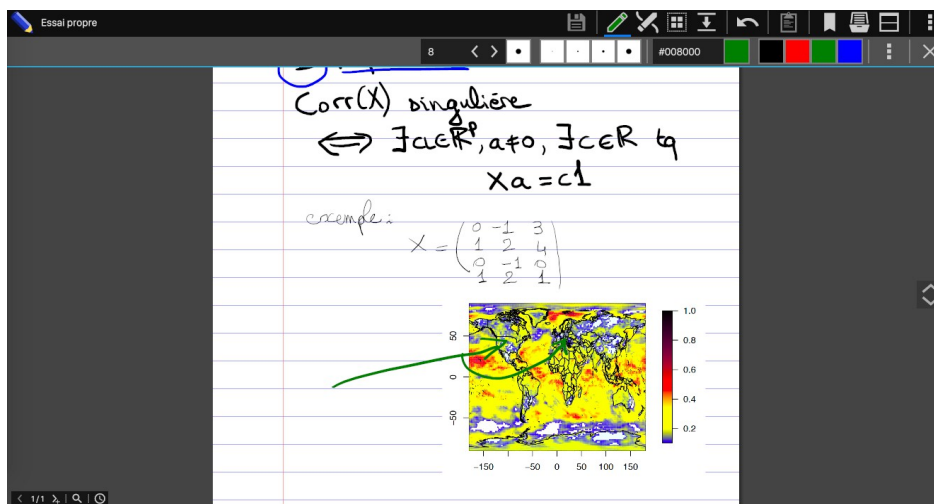 Essai propre
8 #008000
Corr(X) singulière
⟺ ∃a∈ℝᵖ, a≠0, ∃c∈ℝ tq
Xa = c1
exemple :
X = ( 0 -1 3
1 2 4
0 -1 0
1 2 1 )
1.0
50 0.8
0.6
0
0.4
-50
0.2
-150 -50 0 50 100 150
1/1